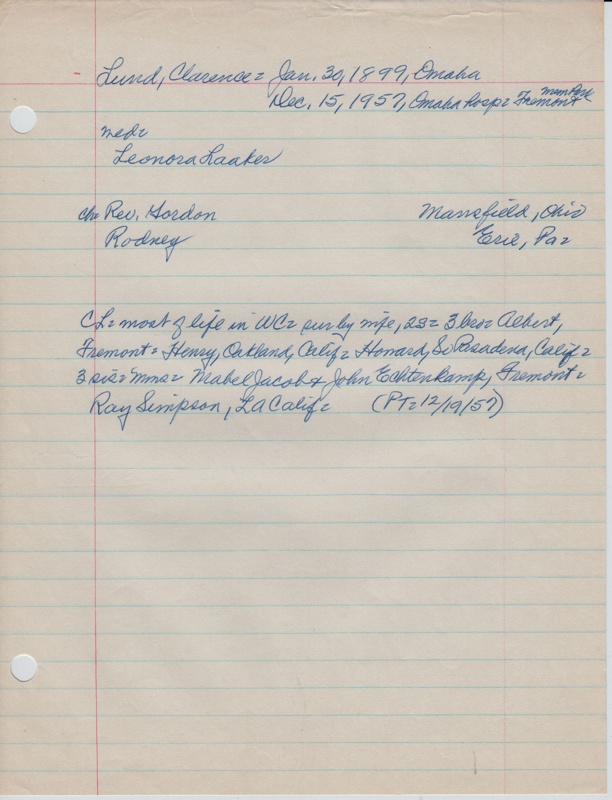 Lund, Clarence = Jan. 30, 1899, Omaha
Dec. 15, 1957, Omaha hosp = Fremont mem Park
med =
Leonora Laaker
ch = Rev. Gordon Mansfield, Ohio
Rodney Erie, Pa =
CL = most of life in WC = sur by wife, 2s = 3 bro = Albert,
Fremont = Henry, Oakland, Calif = Howard, So Pasadena, Calif =
3 sis = Mms = Mabel Jacob & John Echtenkamp, Fremont =
Ray Simpson, LA Calif = (PT = 12/19/57)